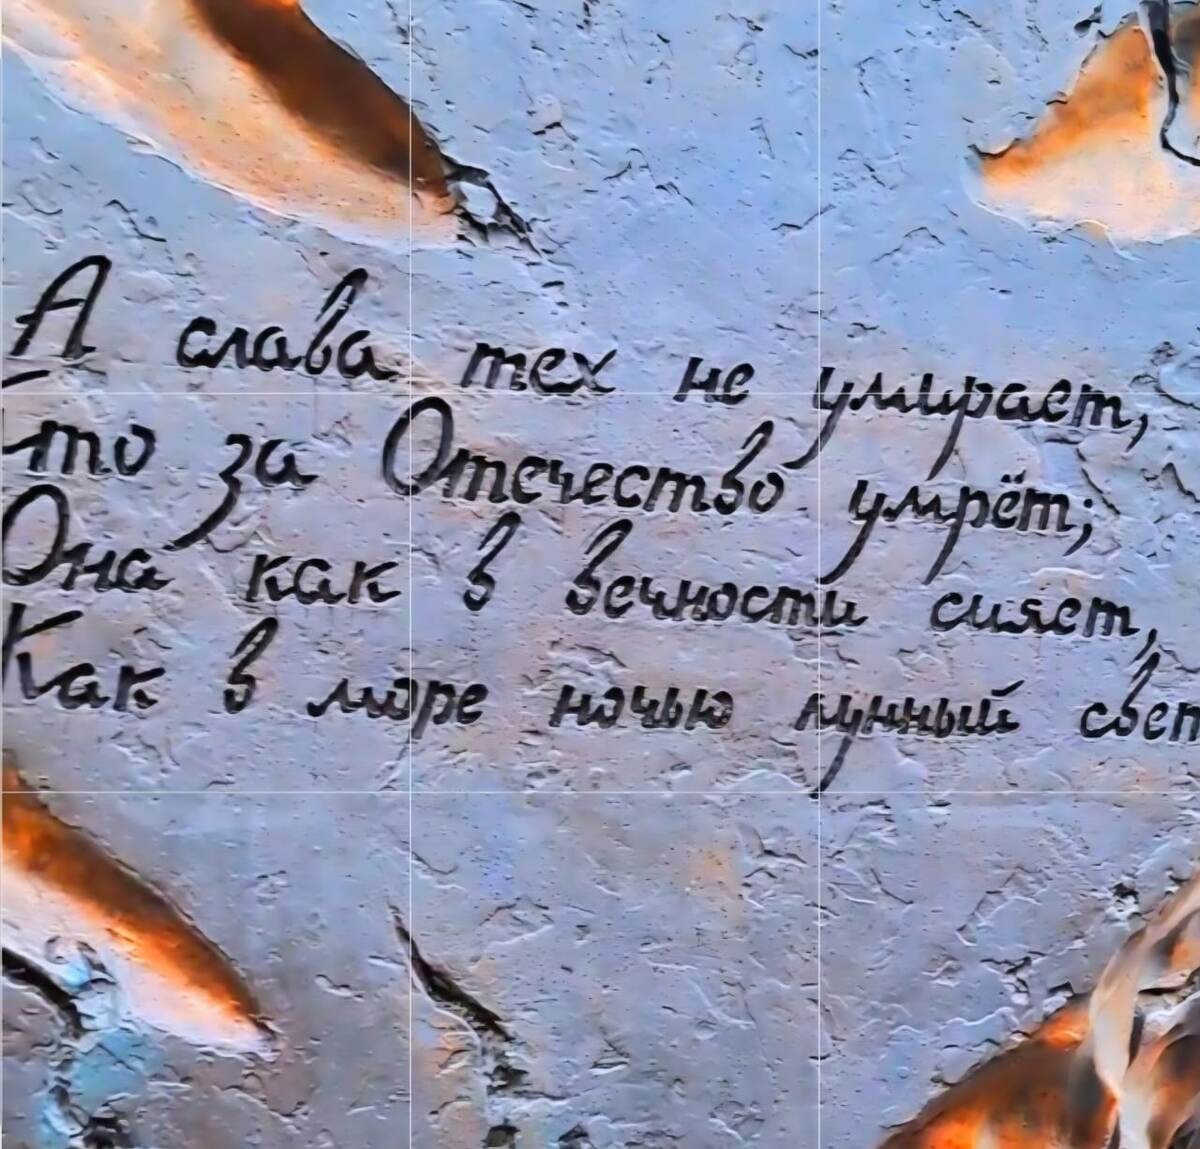 А слава тех не умирает,
Кто за Отечество умрёт;
Она как в вечности сияет,
Как в море ночью лунный свет